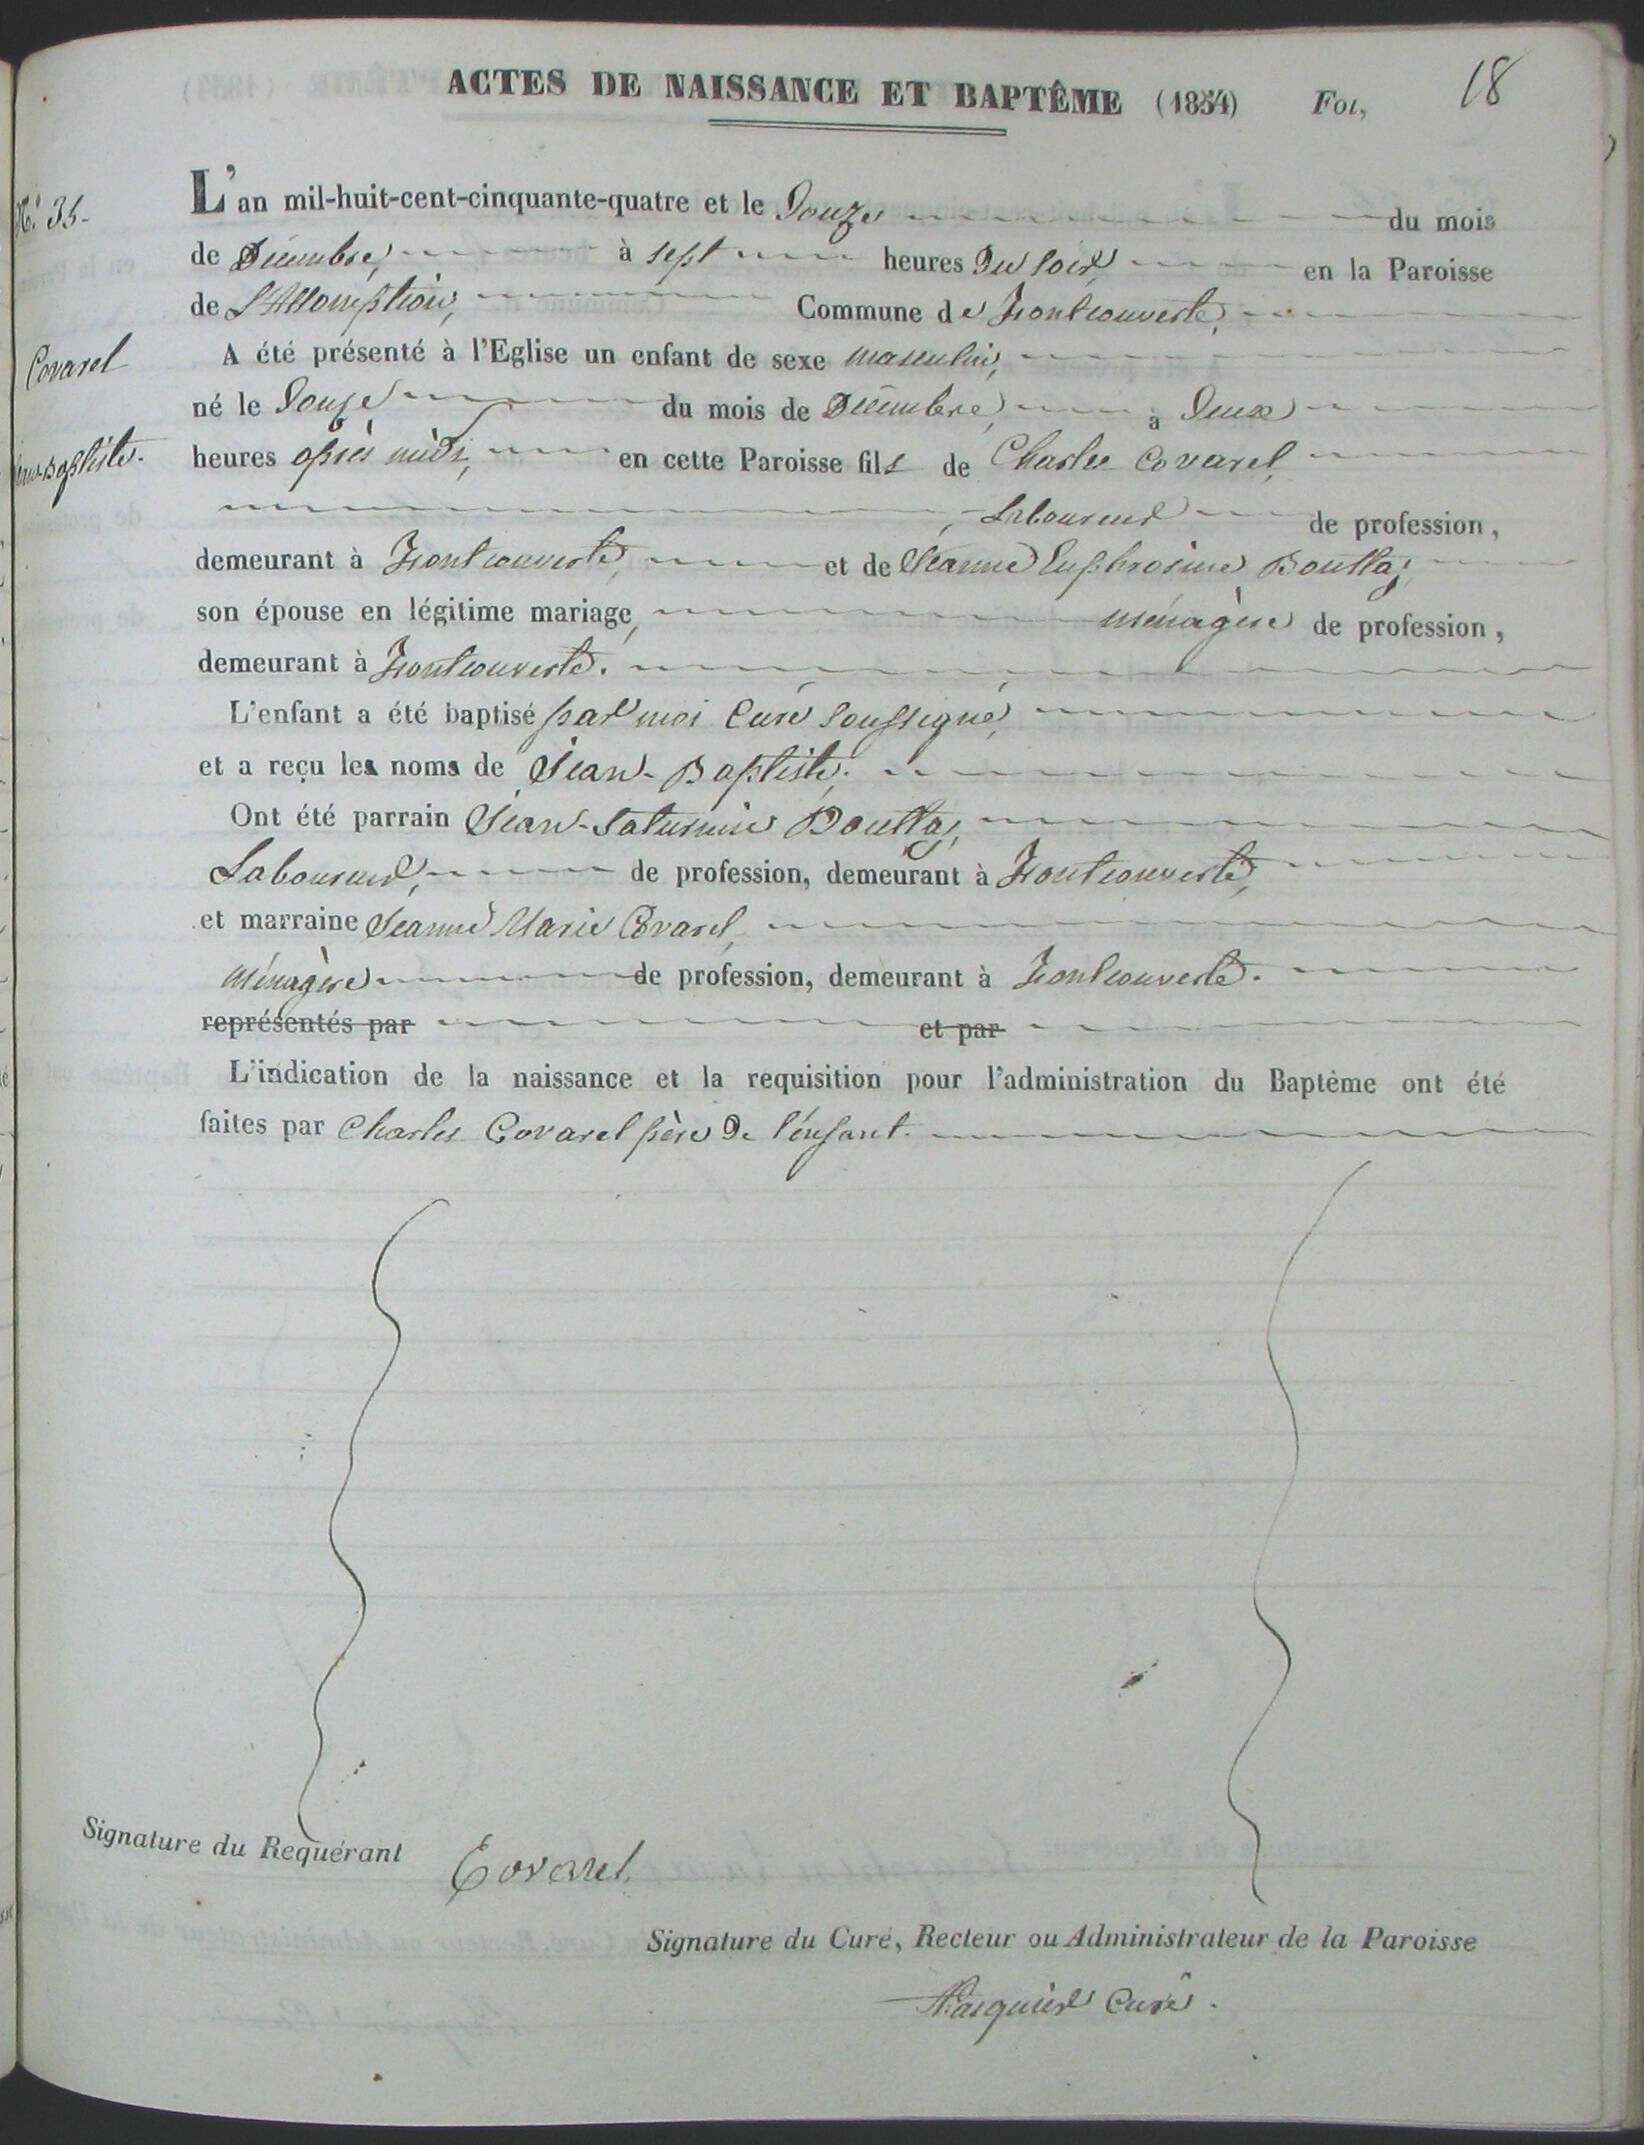 ACTES DE NAISSANCE ET BAPTÊME (1854) Fol, 18
N.° 35.
L'an mil-huit-cent-cinquante-quatre et le Douze du mois
de Décembre, à sept heures du soir, en la Paroisse
de L'Assomption, Commune de Fontcouverte,
Covarel
A été présenté à l'Eglise un enfant de sexe masculin,
né le Douze du mois de Décembre, à Deux
Jean-Baptiste.
heures après midi, en cette Paroisse fils de Charles Covarel,
Laboureur de profession,
demeurant à Fontcouverte, et de Jeanne Euphrosine Bouttaz,
son épouse en légitime mariage, ménagère de profession,
demeurant à Fontcouverte.
L'enfant a été baptisé par moi Curé soussigné,
et a reçu les noms de Jean-Baptiste.
Ont été parrain Jean-Saturnin Bouttaz,
Laboureur, de profession, demeurant à Fontcouverte,
et marraine Jeanne Marie Covarel,
ménagère de profession, demeurant à Fontcouverte.
représentés par et par
L'indication de la naissance et la requisition pour l'administration du Baptême ont été
faites par Charles Covarel père de l'enfant.
Signature du Requérant Covarel
Signature du Curé, Recteur ou Administrateur de la Paroisse
Curé.